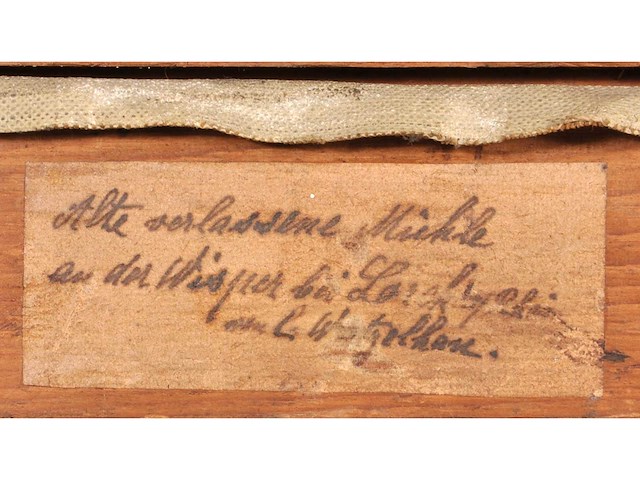 Alte verlassene Mühle
an der Wisper bei Lorch
von